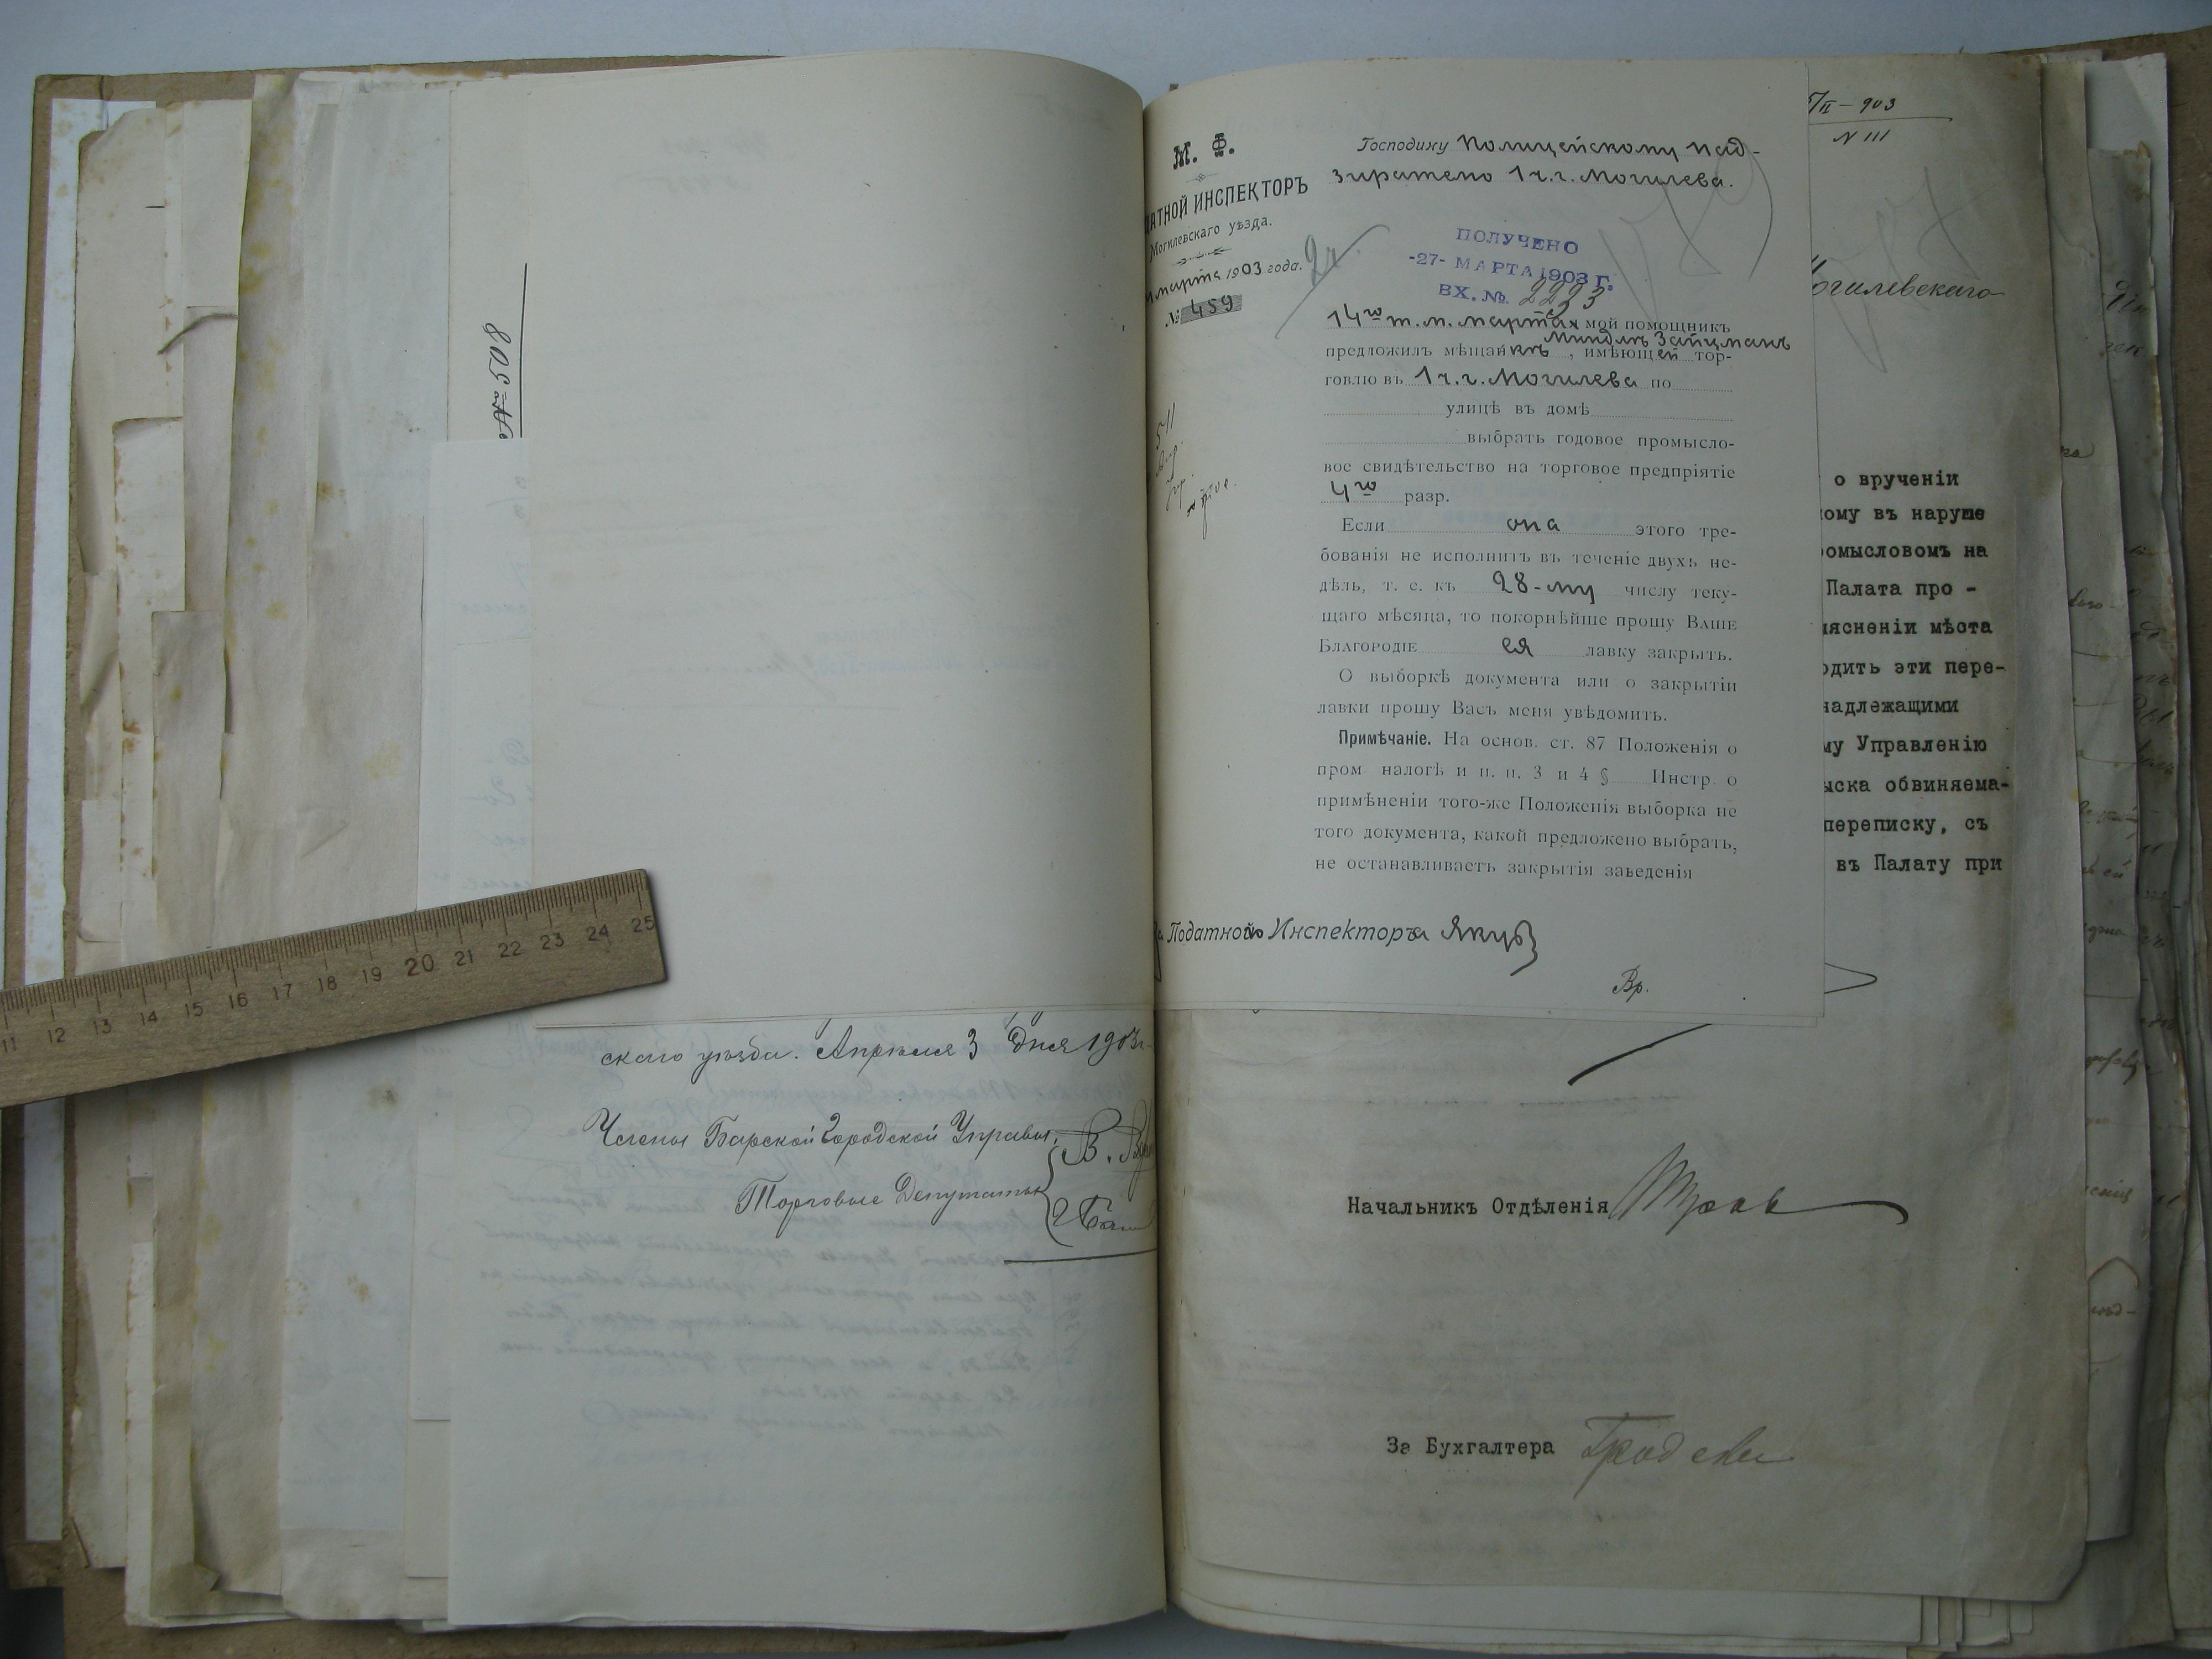 № 508
скаго уѣзда. Апрѣля 3 дня 1903 г.
Члены Барской Городской Управы,
Торговые Депутаты
М. Ф.
АТНОЙ ИНСПЕКТОРЪ
Могилевскаго уѣзда.
марта 1903 года.
№ 459
Господину Полицейскому Над-
зирателю 1 ч. г. Могилева.
ПОЛУЧЕНО
-27- МАРТА 1903 Г.
ВХ. №. 2293
14го т. м. марта мой помощникъ
Миндлѣ Зайцманъ
предложилъ мѣщанкѣ , имѣющей тор-
говлю въ 1 ч. г. Могилева по
улицѣ въ домѣ
выбрать годовое промысло-
вое свидѣтельство на торговое предпріятіе
4го разр.
Если она этого тре-
бованія не исполнитъ въ теченіе двухъ не-
дѣль, т. е. къ 28-му числу теку-
щаго мѣсяца, то покорнѣйше прошу ВАШЕ
БЛАГОРОДІЕ ея лавку закрыть.
О выборкѣ документа или о закрытіи
лавки прошу Васъ меня увѣдомить.
Примѣчаніе. На основ. ст. 87 Положенія о
пром налогѣ и п. п. 3 и 4 § Инстр. о
примѣненіи того-же Положенія выборка не
того документа, какой предложено выбрать,
не останавливаетъ закрытія заведенія
Податного Инспектора Якуб
Вр.
/II – 903
N 111
огилевскаго
о врученіи
ому въ наруше
омысловомъ на
Палата про -
ясненіи мѣста
одить эти пере-
надлежащими
му Управленію
ыска обвиняема-
переписку, съ
въ Палату при
Начальникъ Отдѣленія
За Бухгалтера
11 12 13 14 15 16 17 18 19 20 21 22 23 24 25